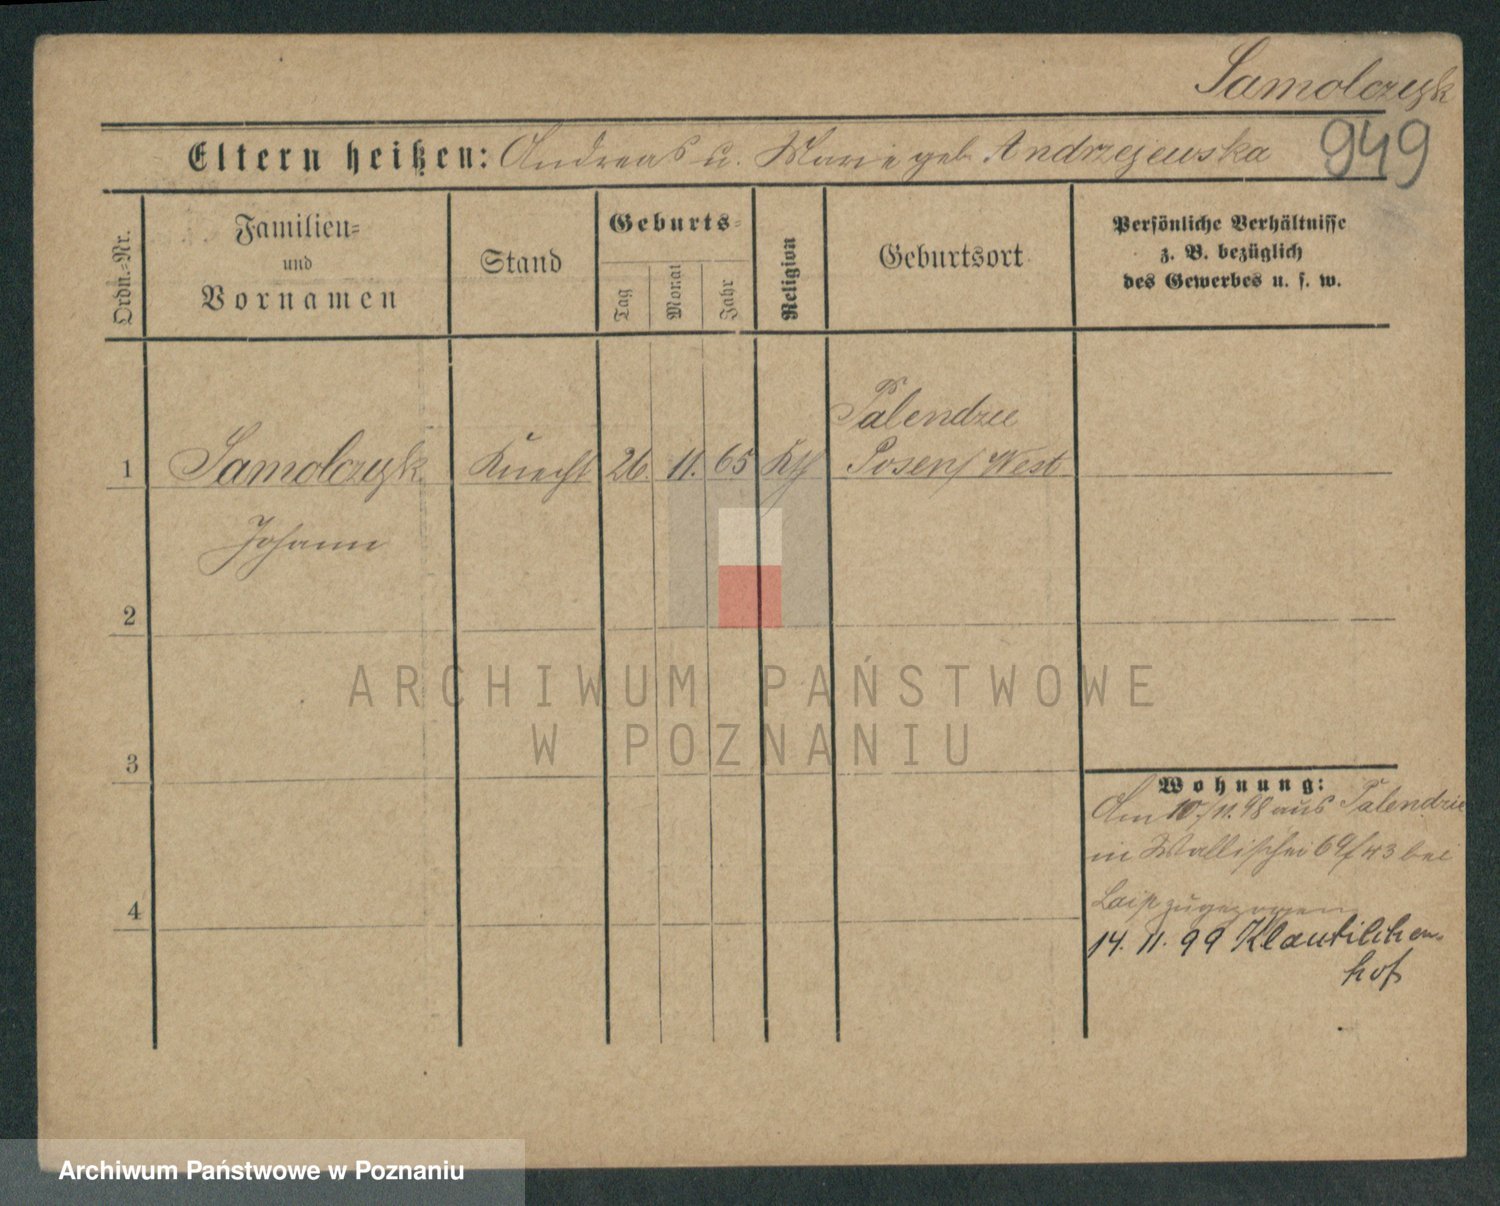 Samolczyk
949
Eltern heißen: Andreas u. Marie geb. Andrzejewska
Ordn.-Nr.
Familien-
und
Vornamen
Stand
Geburts-
Tag
Monat
Jahr
Religion
Geburtsort
Persönliche Verhältnisse
z. B. bezüglich
des Gewerbes u. s. w.
Palendzie
1 Samolczyk Knecht 26. 11. 65 Kth Posen/West
Johann
2
3
4
Wohnung:
Am 10./11. 98 aus Palendzie
in Wallischei 69/73 bei
zugezogen
14. 11. 99
hof
ARCHIWUM PAŃSTWOWE
W POZNANIU
Archiwum Państwowe w Poznaniu